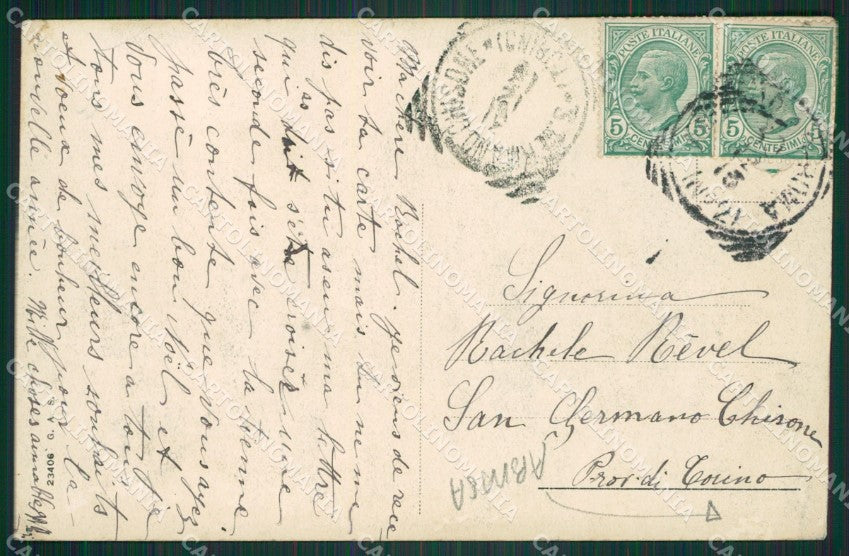 Ma chère Rachel. je viens de rece
voir ta carte mais tu ne me
dis pas si tu as eu ma lettre
qui s'est croisée une
seconde fois avec la tienne
très contente que vous ayez
passé un bon Noël et
vous envoye encore à toutes
tous mes meilleurs souhaits
et voeux de bonheur pour la
nouvelle année. Mille choses
23406
POSTE ITALIANE
5 CENTESIMI 5
POSTE ITALIANE
5 CENTESIMI
S. GERMANO CHISONE * (TORINO)
Signorina
Rachele Rêvel
San Germano Chisone
Prov. di Torino
CARTOLINOMANIA